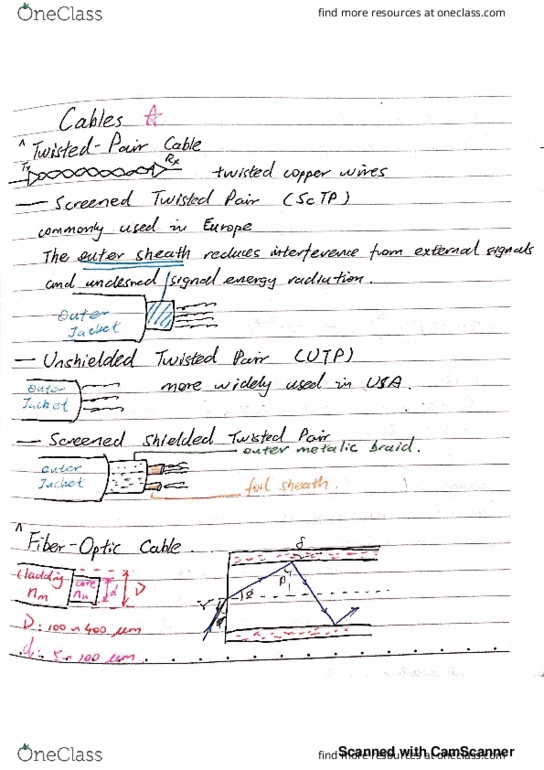 OneClass
find more resources at oneclass.com
Cables ☆
^ Twisted-Pair Cable
Tx Rx twisted copper wires
— Screened Twisted Pair (ScTP)
commonly used in Europe
The outer sheath reduces interference from external signals
and undesired signal energy radiation.
Outer
Jacket
— Unshielded Twisted Pair (UTP)
outer
Jacket
more widely used in USA.
— Screened Shielded Twisted Pair
outer metalic braid.
outer
Jacket
foil sheath.
^ Fiber-Optic Cable.
cladding
nm
core
d
D
D: 100 ~ 400 µm
d: 5 ~ 100 µm
OneClass
find more resources at oneclass.com
Scanned with CamScanner